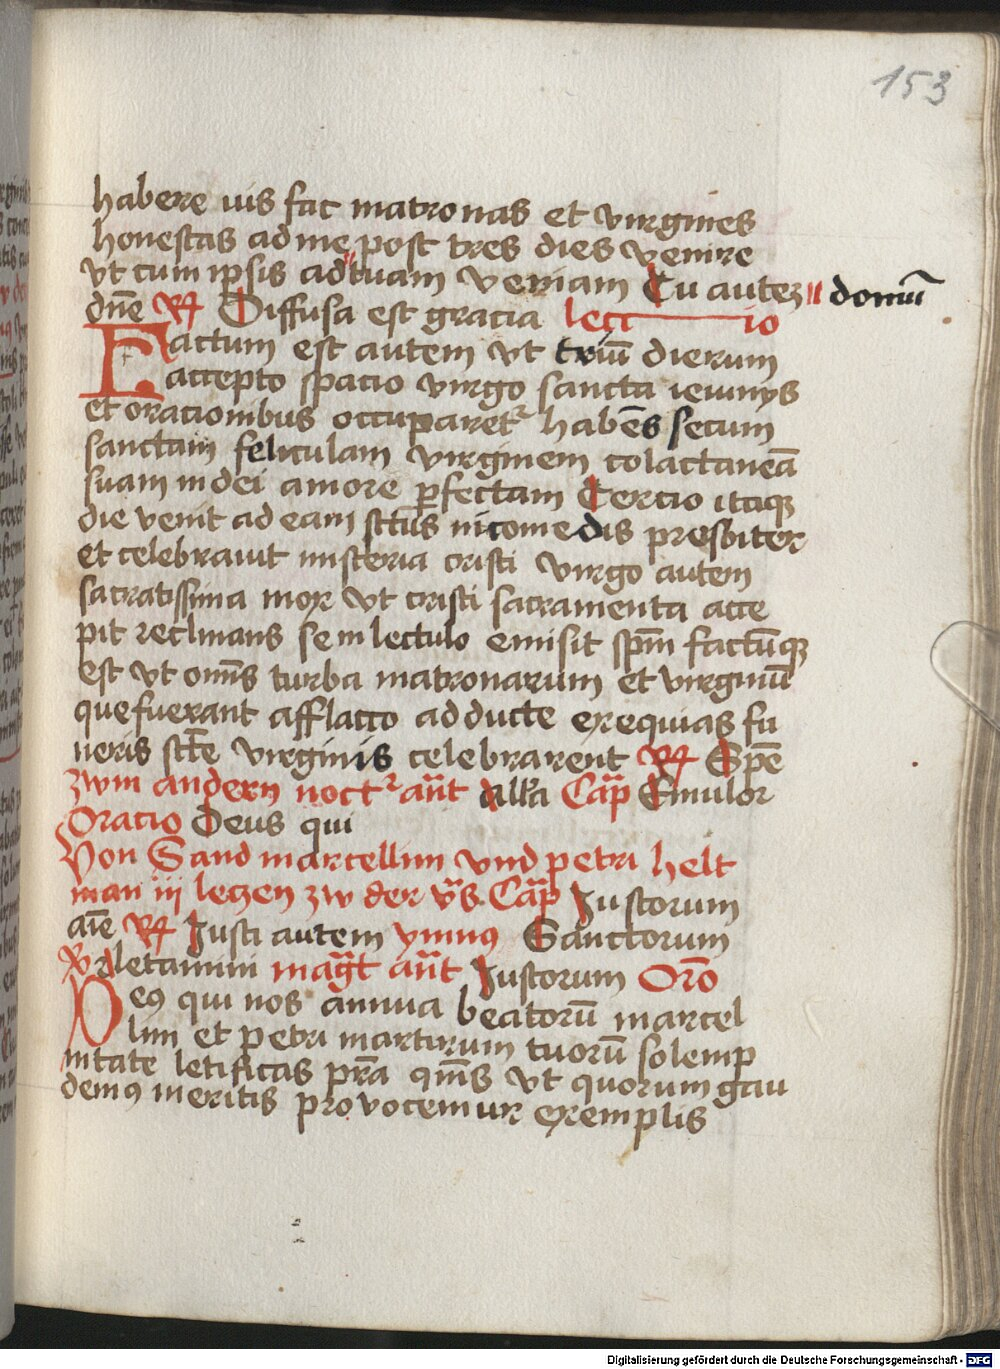 153
habere uis fac matronas et virgines
honestas ad me post tres dies venire
vt cum ipsis ad"tuam veniam Cu autez " domū
dn̄e R̷ Diffusa est gracia lectio
Factum est autem vt triū dierum
accepto spacio virgo sancta ieiunys
et oracionibus occuparet᷑ habēs secum
sanctam feliculam virginem colactaneā
suam in dei amore ꝑfectam Tercio itaqꝫ
die venit ad eam sctūs nicomedis presbiter
et celebrauit misteria cristi virgo autem
sacratissima mox vt cristi sacramenta acce
pit reclinans se in lectulo emisit spm̄ factūqꝫ
est vt omīs turba matronarum et virginū
que fuerant afflacto adducte exequias fu
neris sctē virginis celebrarent R̷ Spē
zwm andern noct᷑ ant̄ alla Cap̄ Emulor
Oracio Deus qui
Von Sand marcellin vnd petri helt
man iii leczen zw der v̄s. Cap̄ Justorum
aīe R̷ Justi autem ymnꝰ Sanctorum
V̷ letamini mag̃t ant̄ Justorum Orō
Deꝰ qui nos annua beatorū marcel
lini et petri martirum tuorū solemp
nitate letificas pr̄a qm̄s vt quorum gau
demꝰ meritis prouocemur exemplis
Digitalisierung gefördert durch die Deutsche Forschungsgemeinschaft - DFG